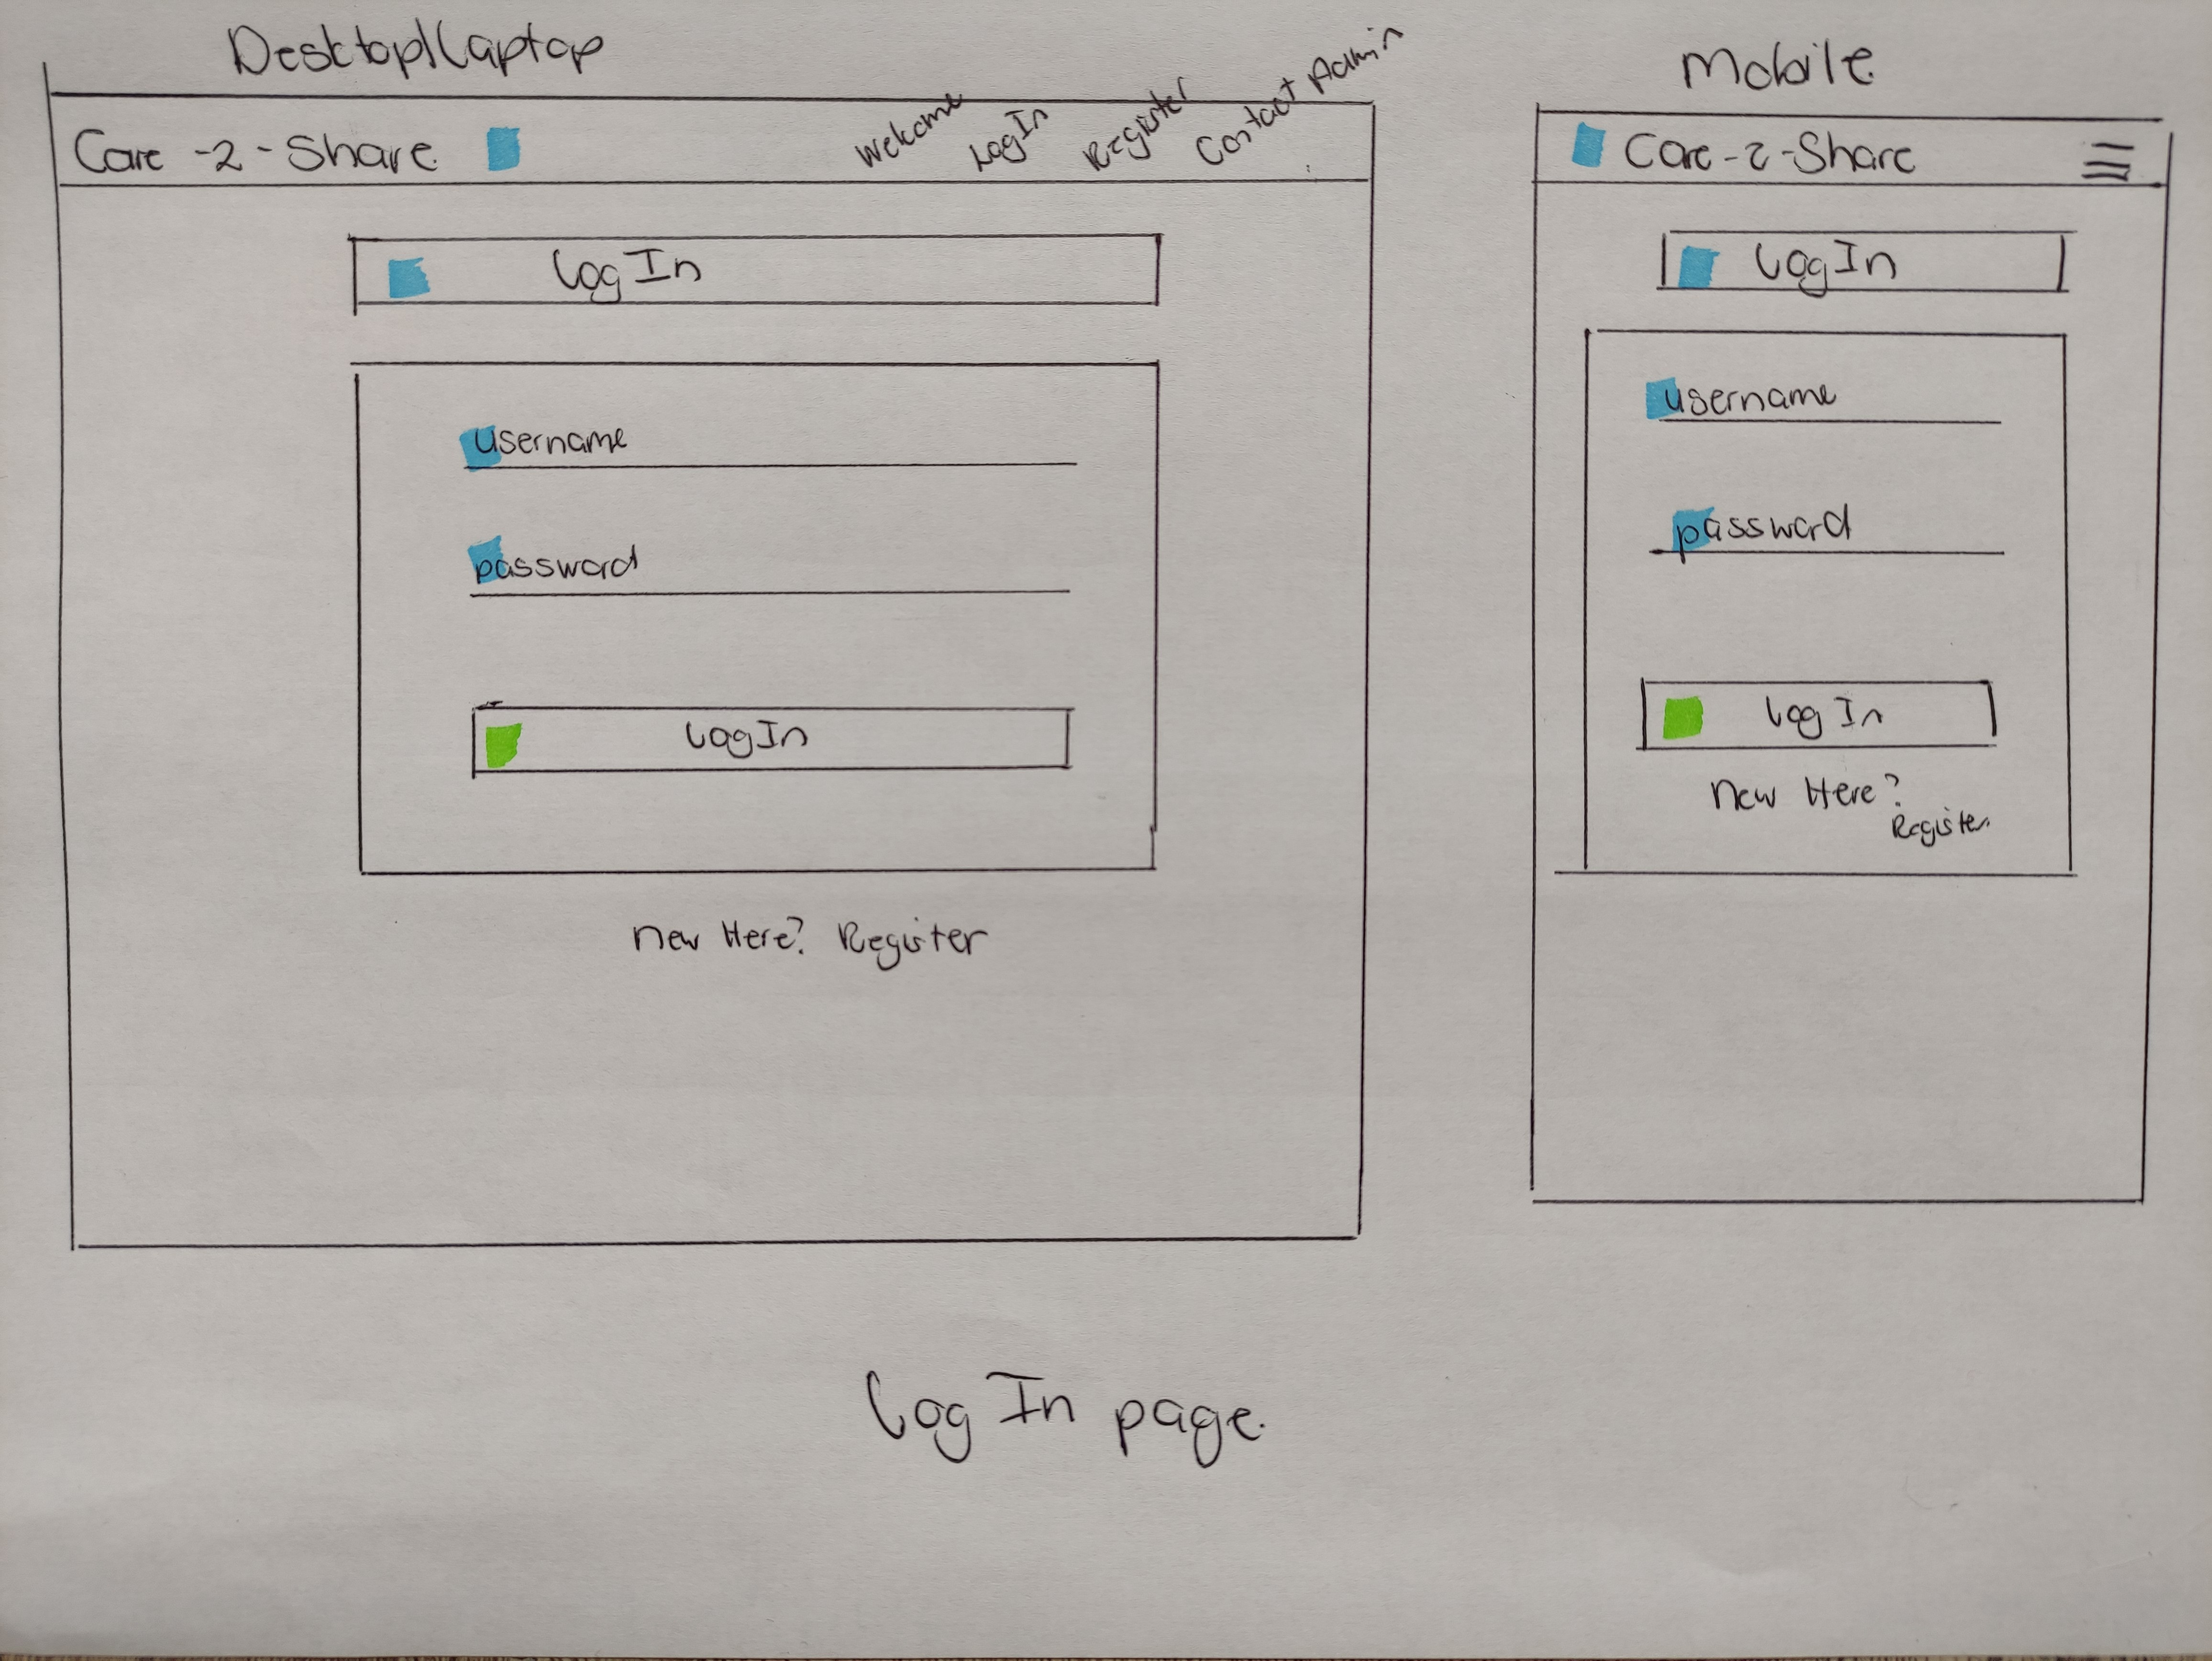 Desktop|Laptop
Care -2- Share
Welcome
LogIn
Register
Contact Admin
Log In
username
password
LogIn
New Here? Register
Mobile
Care-2-Share
LogIn
username
password
Log In
New Here?
Register.
Log In page.